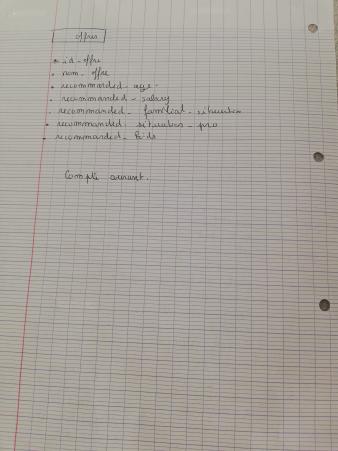 offres
• id - offre
• nom - offre
• recommanded - age -
. recommanded - salary
. recommanded - familial - situation
• recommanded situation - pro
• recommanded - kids
Compte courant.